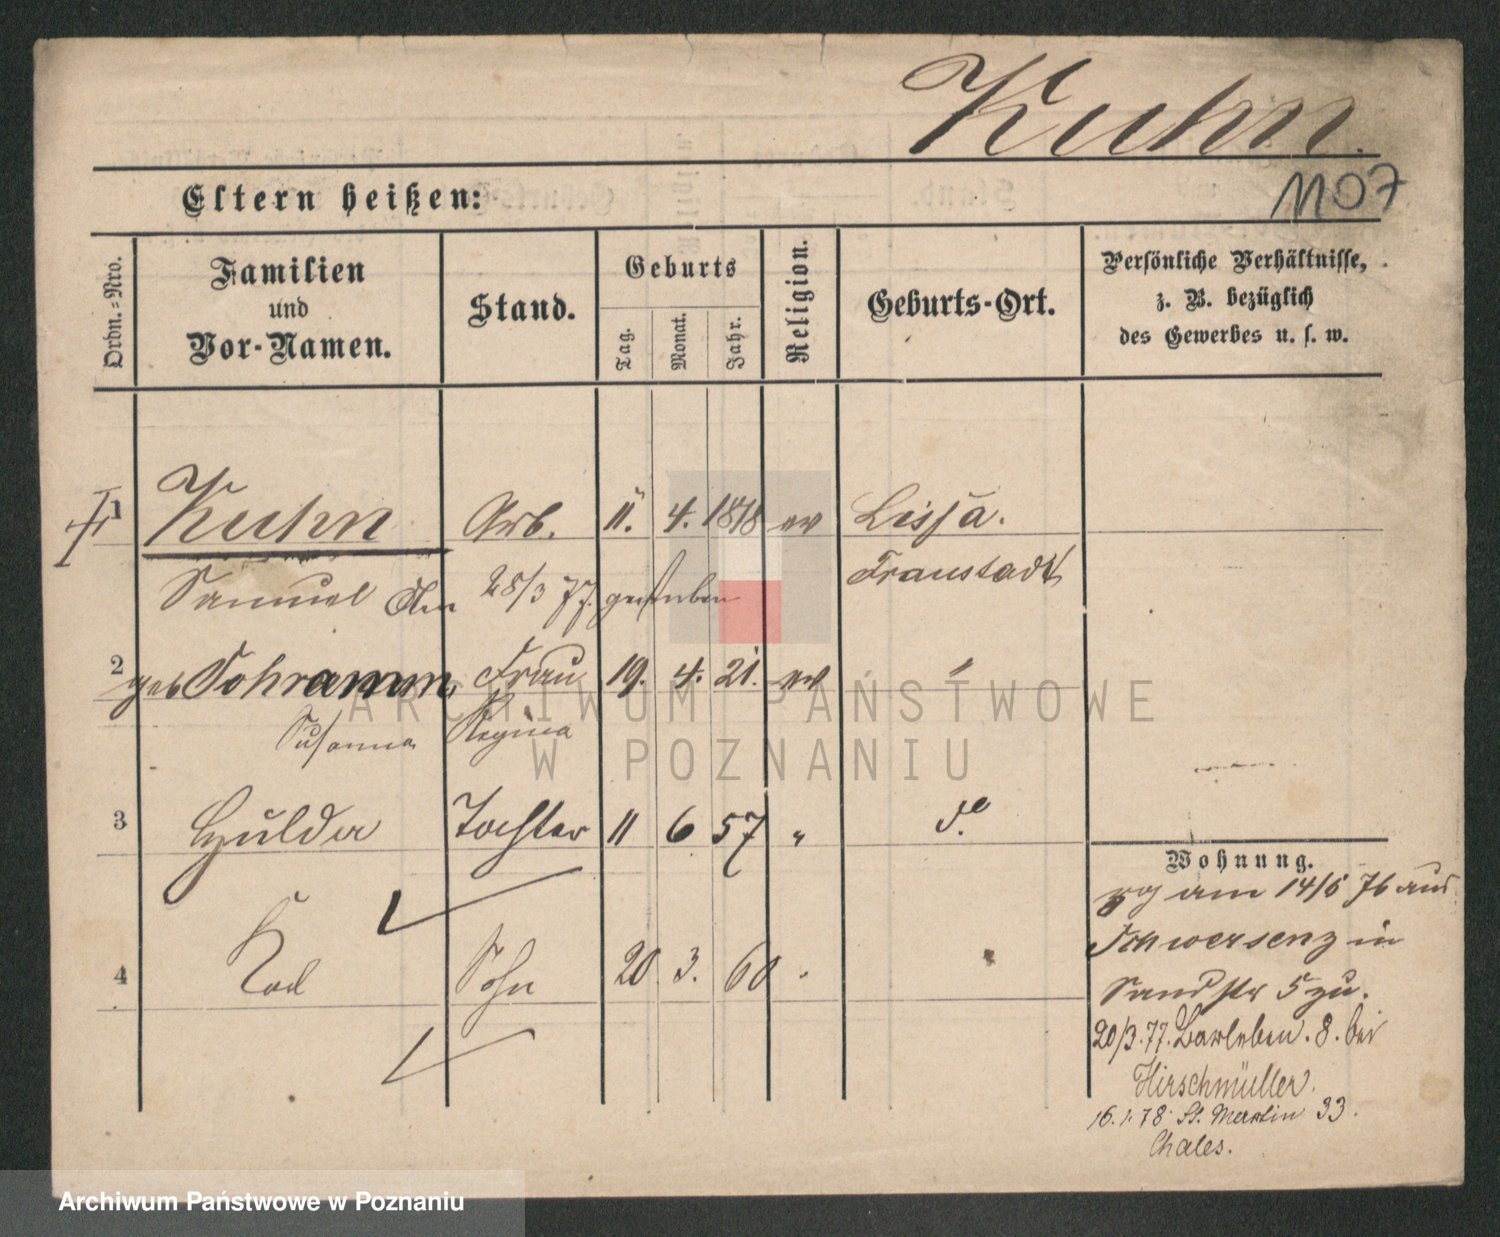 Kuhn.
Eltern heißen:
1107
Ordn.-Nro.
Familien
und
Vor-Namen.
Stand.
Geburts
Tag.
Monat.
Jahr.
Religion.
Geburts-Ort.
Persönliche Verhältnisse,
z. B. bezüglich
des Gewerbes u. s. w.
1 Kuhn Arb. 11. 4. 1818 ev Lissa.
Samuel Am 28/3 77. gestorben Fraustadt
2 geb Schramm, Frau 19. 4. 21. ev "
Susanna Regina
ARCHIWUM PAŃSTWOWE
W POZNANIU
3 Hulda Tochter 11 6 57 "
Wohnung.
zog am 14/6 76 aus
4 Sohn 20. 3. 60
Schwersenz in
Sandstr 5 zu.
20/3.77. 8. bei
Hirschmüller.
16.1.78 St. Martin 33.
Chales.
Archiwum Państwowe w Poznaniu